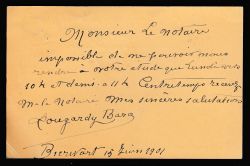 Monsieur le Notaire
impossible de me pouvoir nous
rendre à votre étude que lundi vers
10 h et demi a 11 h Entretemps recevez
M. le Notaire mes sincères salutations
15 Juin 1901